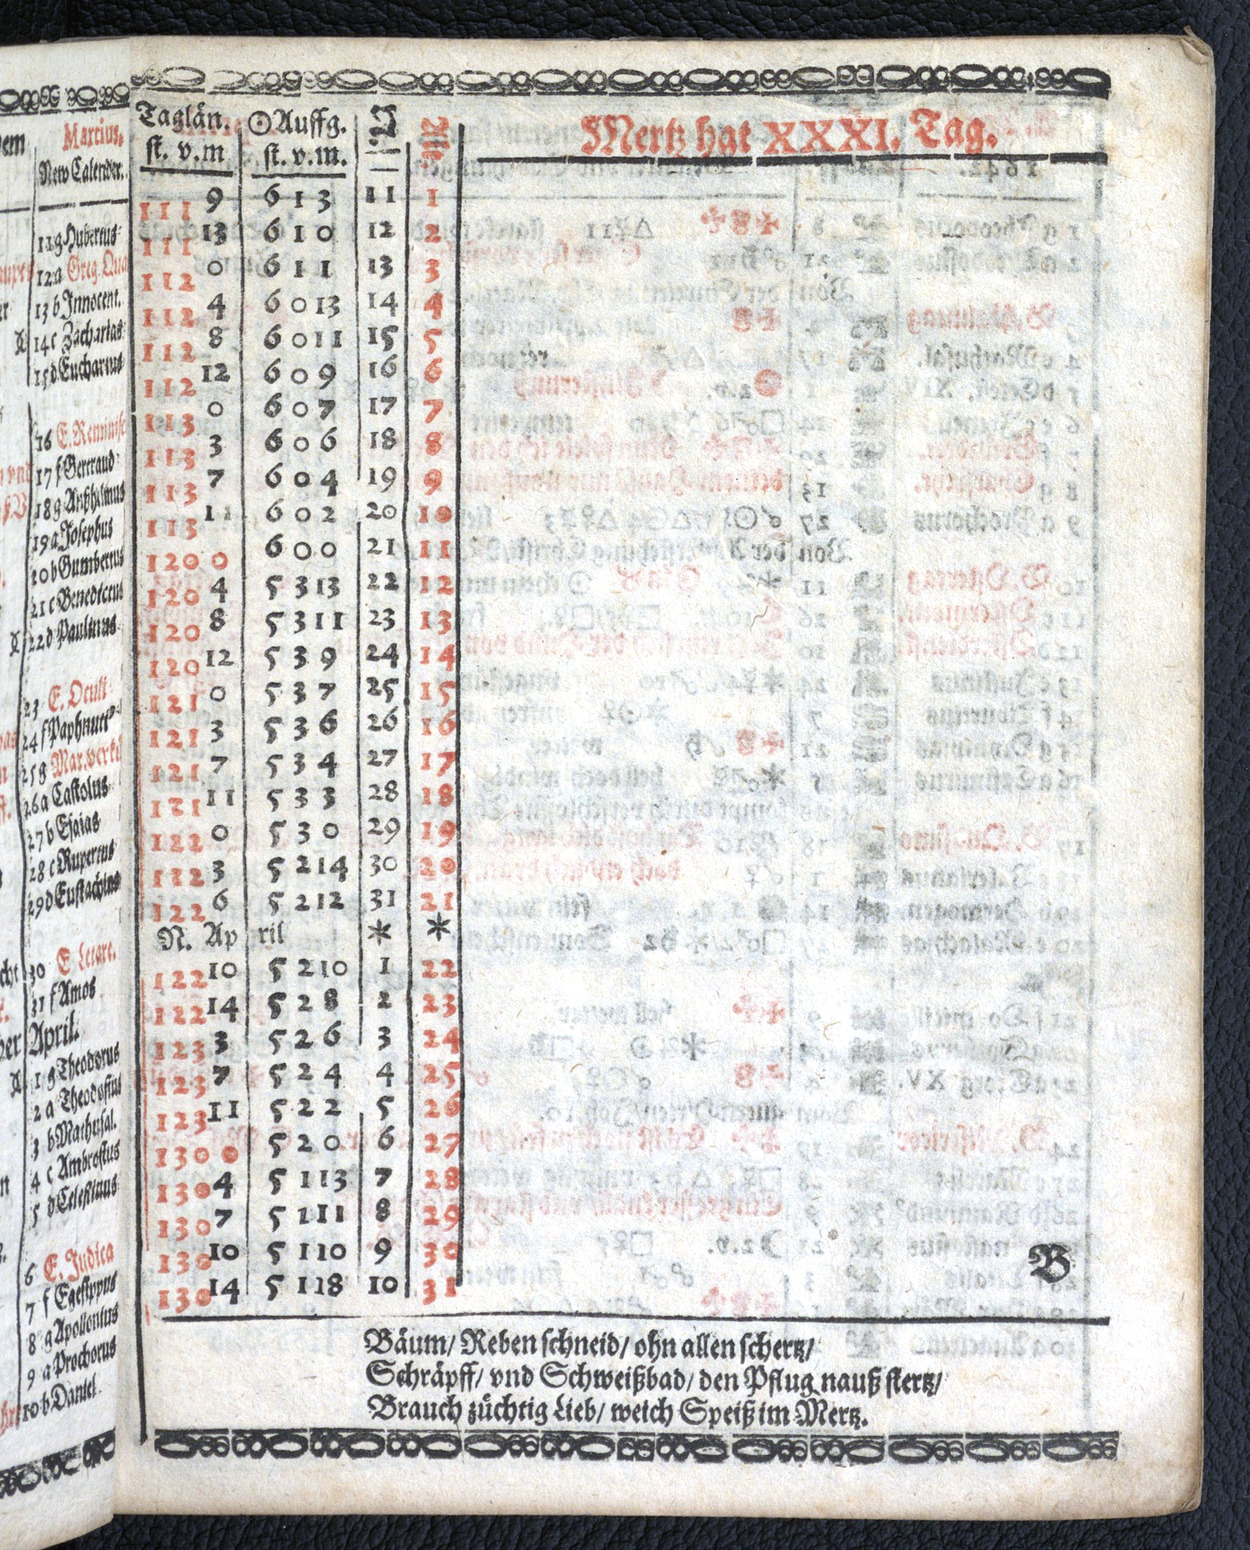 Taglän. ☉Auffg. N A Mertz hat XXXI. Tag.
st. v. m st. v. m.
111 9 6 1 3 11 1
111 13 6 1 0 12 2
112 0 6 1 1 13 3
112 4 6 0 13 14 4
112 8 6 0 11 15 5
112 12 6 0 9 16 6
113 0 6 0 7 17 7
113 3 6 0 6 18 8
113 7 6 0 4 19 9
113 11 6 0 2 20 10
120 0 6 0 0 21 11
120 4 5 3 13 22 12
120 8 5 3 11 23 13
120 12 5 3 9 24 14
121 0 5 3 7 25 15
121 3 5 3 6 26 16
121 7 5 3 4 27 17
121 11 5 3 3 28 18
122 0 5 3 0 29 19
122 3 5 2 14 30 20
122 6 5 2 12 31 21
N. April * *
122 10 5 2 10 1 22
122 14 5 2 8 2 23
123 3 5 2 6 3 24
123 7 5 2 4 4 25
123 11 5 2 2 5 26
130 0 5 2 0 6 27
130 4 5 1 13 7 28
130 7 5 1 11 8 29
130 10 5 1 10 9 30
130 14 5 1 18 10 31
B
Bäum/ Reben schneid/ ohn allen schertz/
Schräpff/ vnd Schweißbad/ den Pflug nauß stertz/
Brauch züchtig Lieb/ weich Speiß im Mertz.
Martius.
New Calender.
11 g Hubertus
12 a Greg.
13 b Innocent.
14 c Zacharias
15 d Eucharius
16 E. Reminisc
17 f Gertraud
18 g Anshelmus
19 a Josephus
20 b Gumbertus
21 c Benedictus
22 d Paulinus
23 E. Oculi
24 f Paphnuti
25 g Mar. verkü
26 a Castolus
27 b Esaias
28 c Rupertus
29 d Eustachius
30 E Letare.
31 f Amos
April.
1 g Theodorus
2 a Theodosius
3 b Mathusal.
4 c Ambrosius
5 d Celestinus
6 E. Judica
7 f Egesippus
8 g Apollonius
9 a Prochorus
10 b Daniel